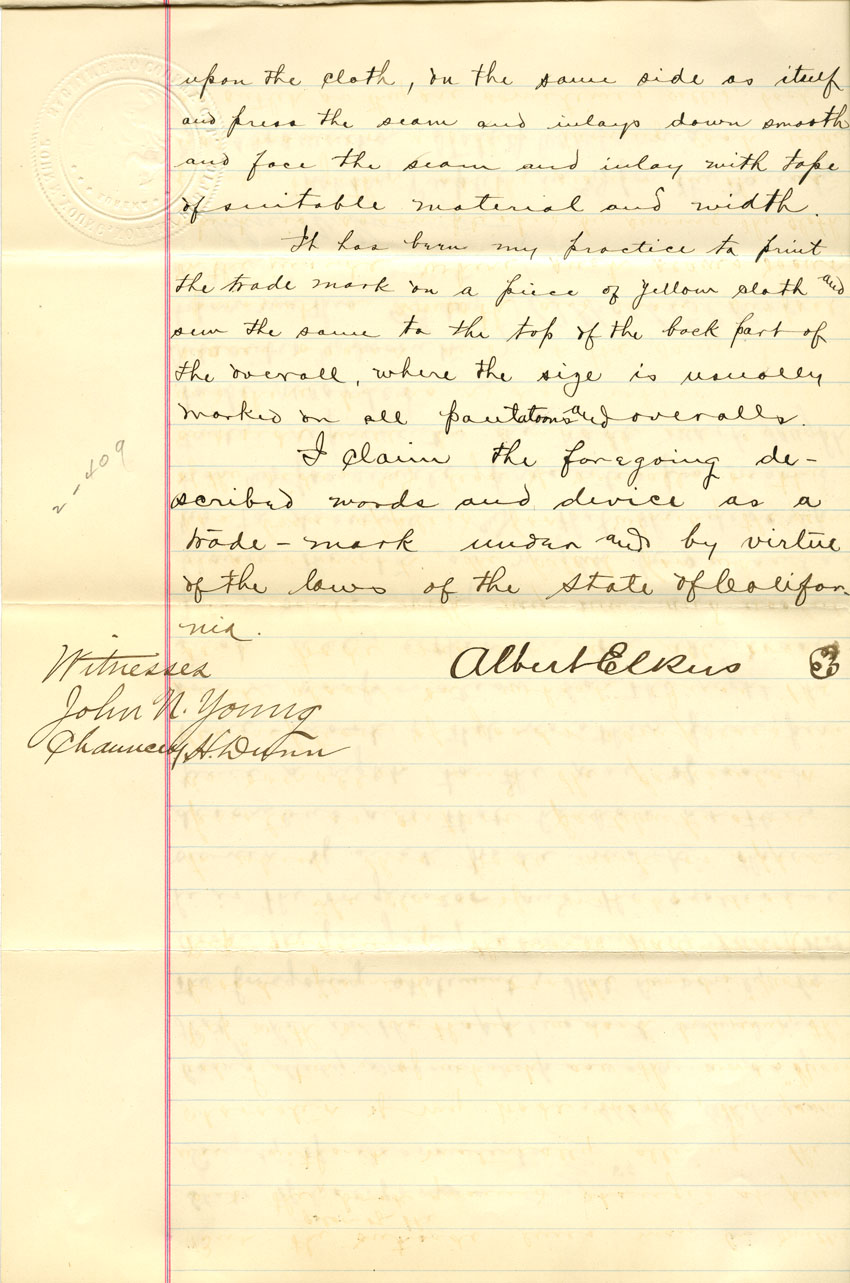 upon the cloth, on the same side as itself
and press the seam and inlays down smooth
and face the seam and inlay with tape
of suitable material and width.
It has been my practice to print
the trade mark on a piece of yellow cloth and
sew the same to the top of the back part of
the overall, where the size is usually
marked on all pantatoons and overalls.
I claim the foregoing de-
scribed words and device as a
trade-mark under and by virtue
of the laws of the State of Califor-
nia.
2-409
Albert Elkus
Witnesses
John N. Young
Chauncey H. Dunn